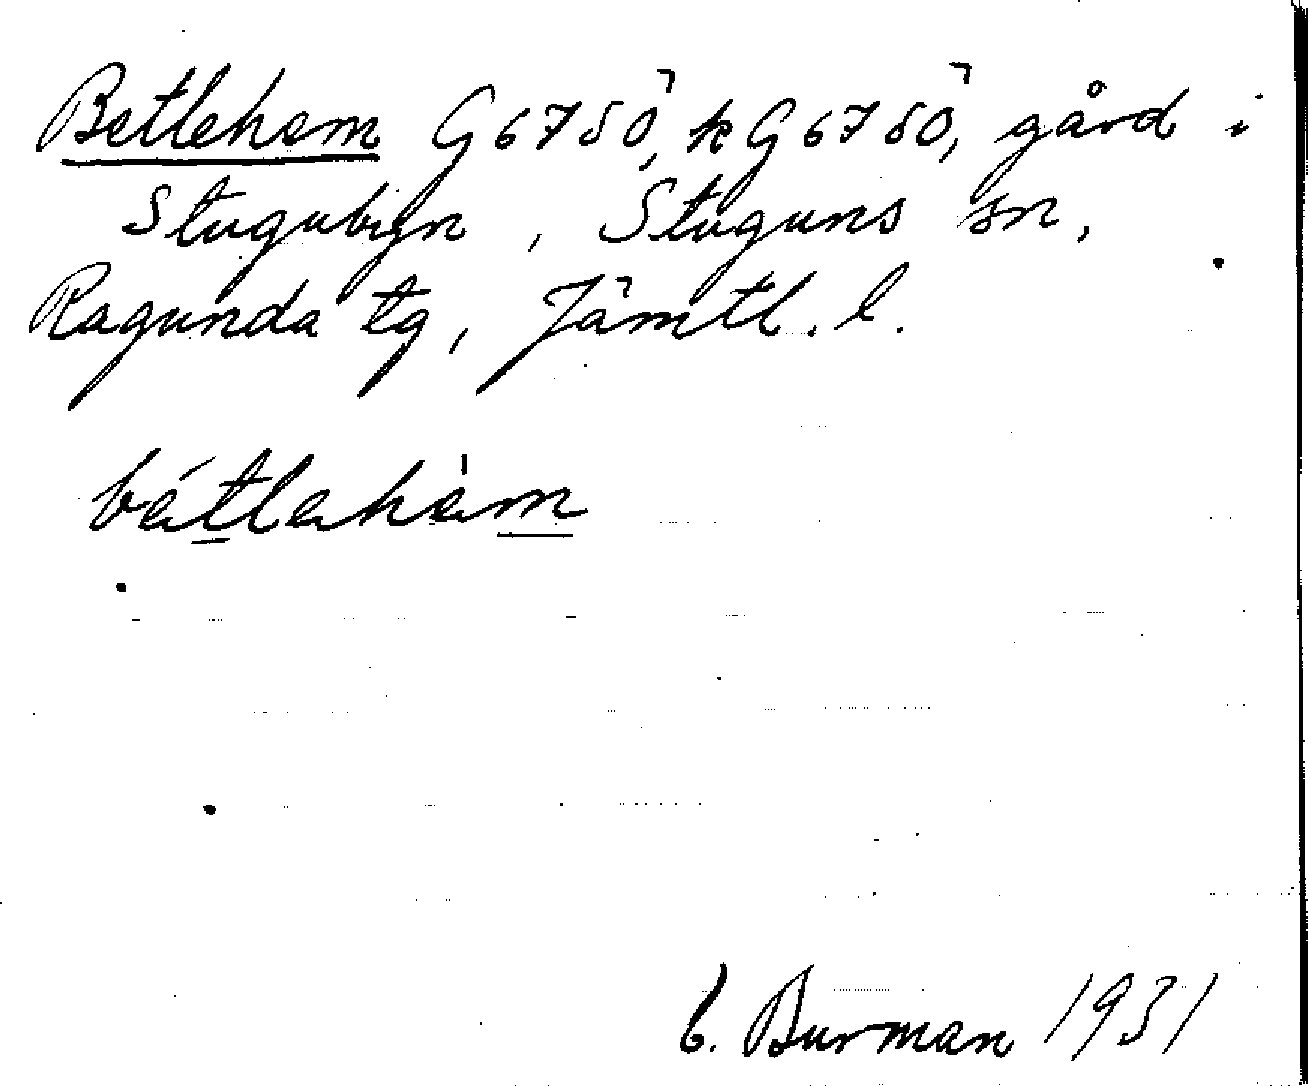 Betlehem G6750, k G6750, gård i
Stugubyn, Stuguns sn,
Ragunda tg, Jämtl. l.
bétlehèm
C. Burman 1931